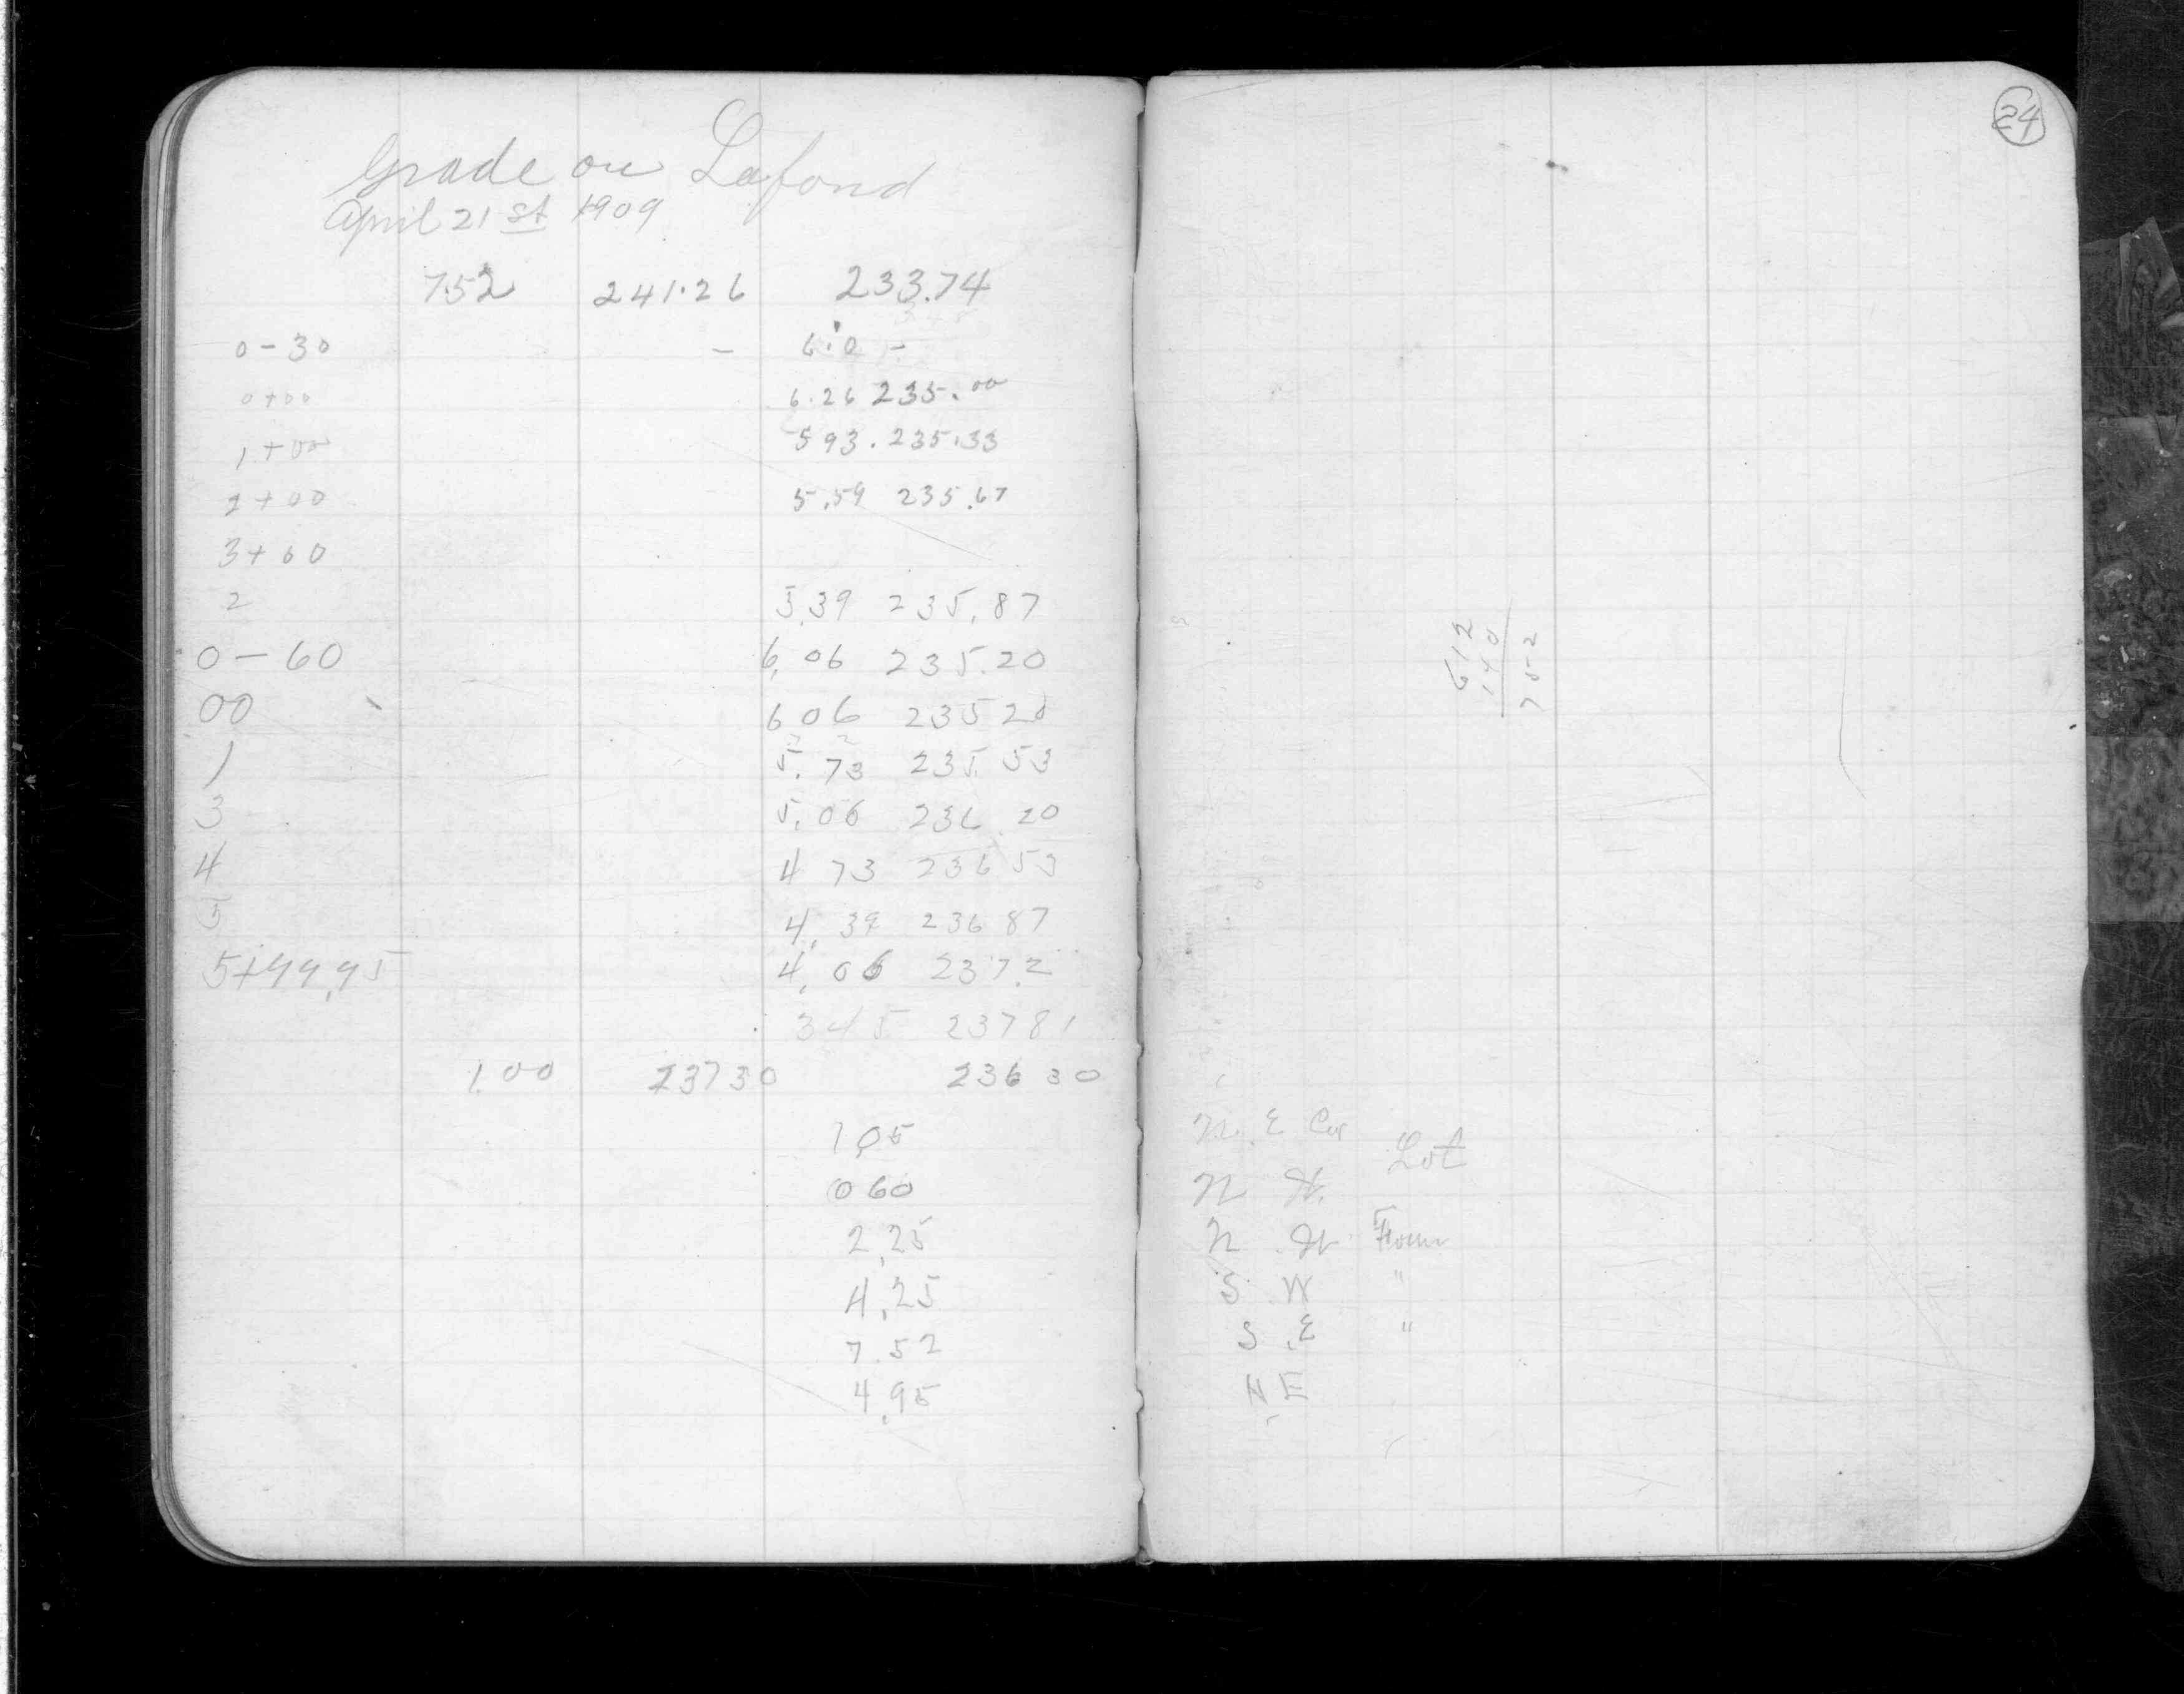 Grade on Lafond
April 21 st 1909
7.52 241.26 233.74
0-30 - 6.0 -
0+00 6.26 235.00
1+00 5 93. 235.33
2+00 5.59 235.67
3+60
2 5.39 235.87
0-60 6.06 235.20
00 6 06 235 20
1 5.73 235 53
3 5.06 236 20
4 4 73 236 53
5 4.39 236 87
5+99.95 4.06 237.2
3 45 237 81
1.00 237 30 236 30
1 05
0 60
2.25
4.25
7.52
4.95
24
6 12
1 40
7 52
N. E Cor
Lot
N W.
N. W
S. W "
S. E "
N E